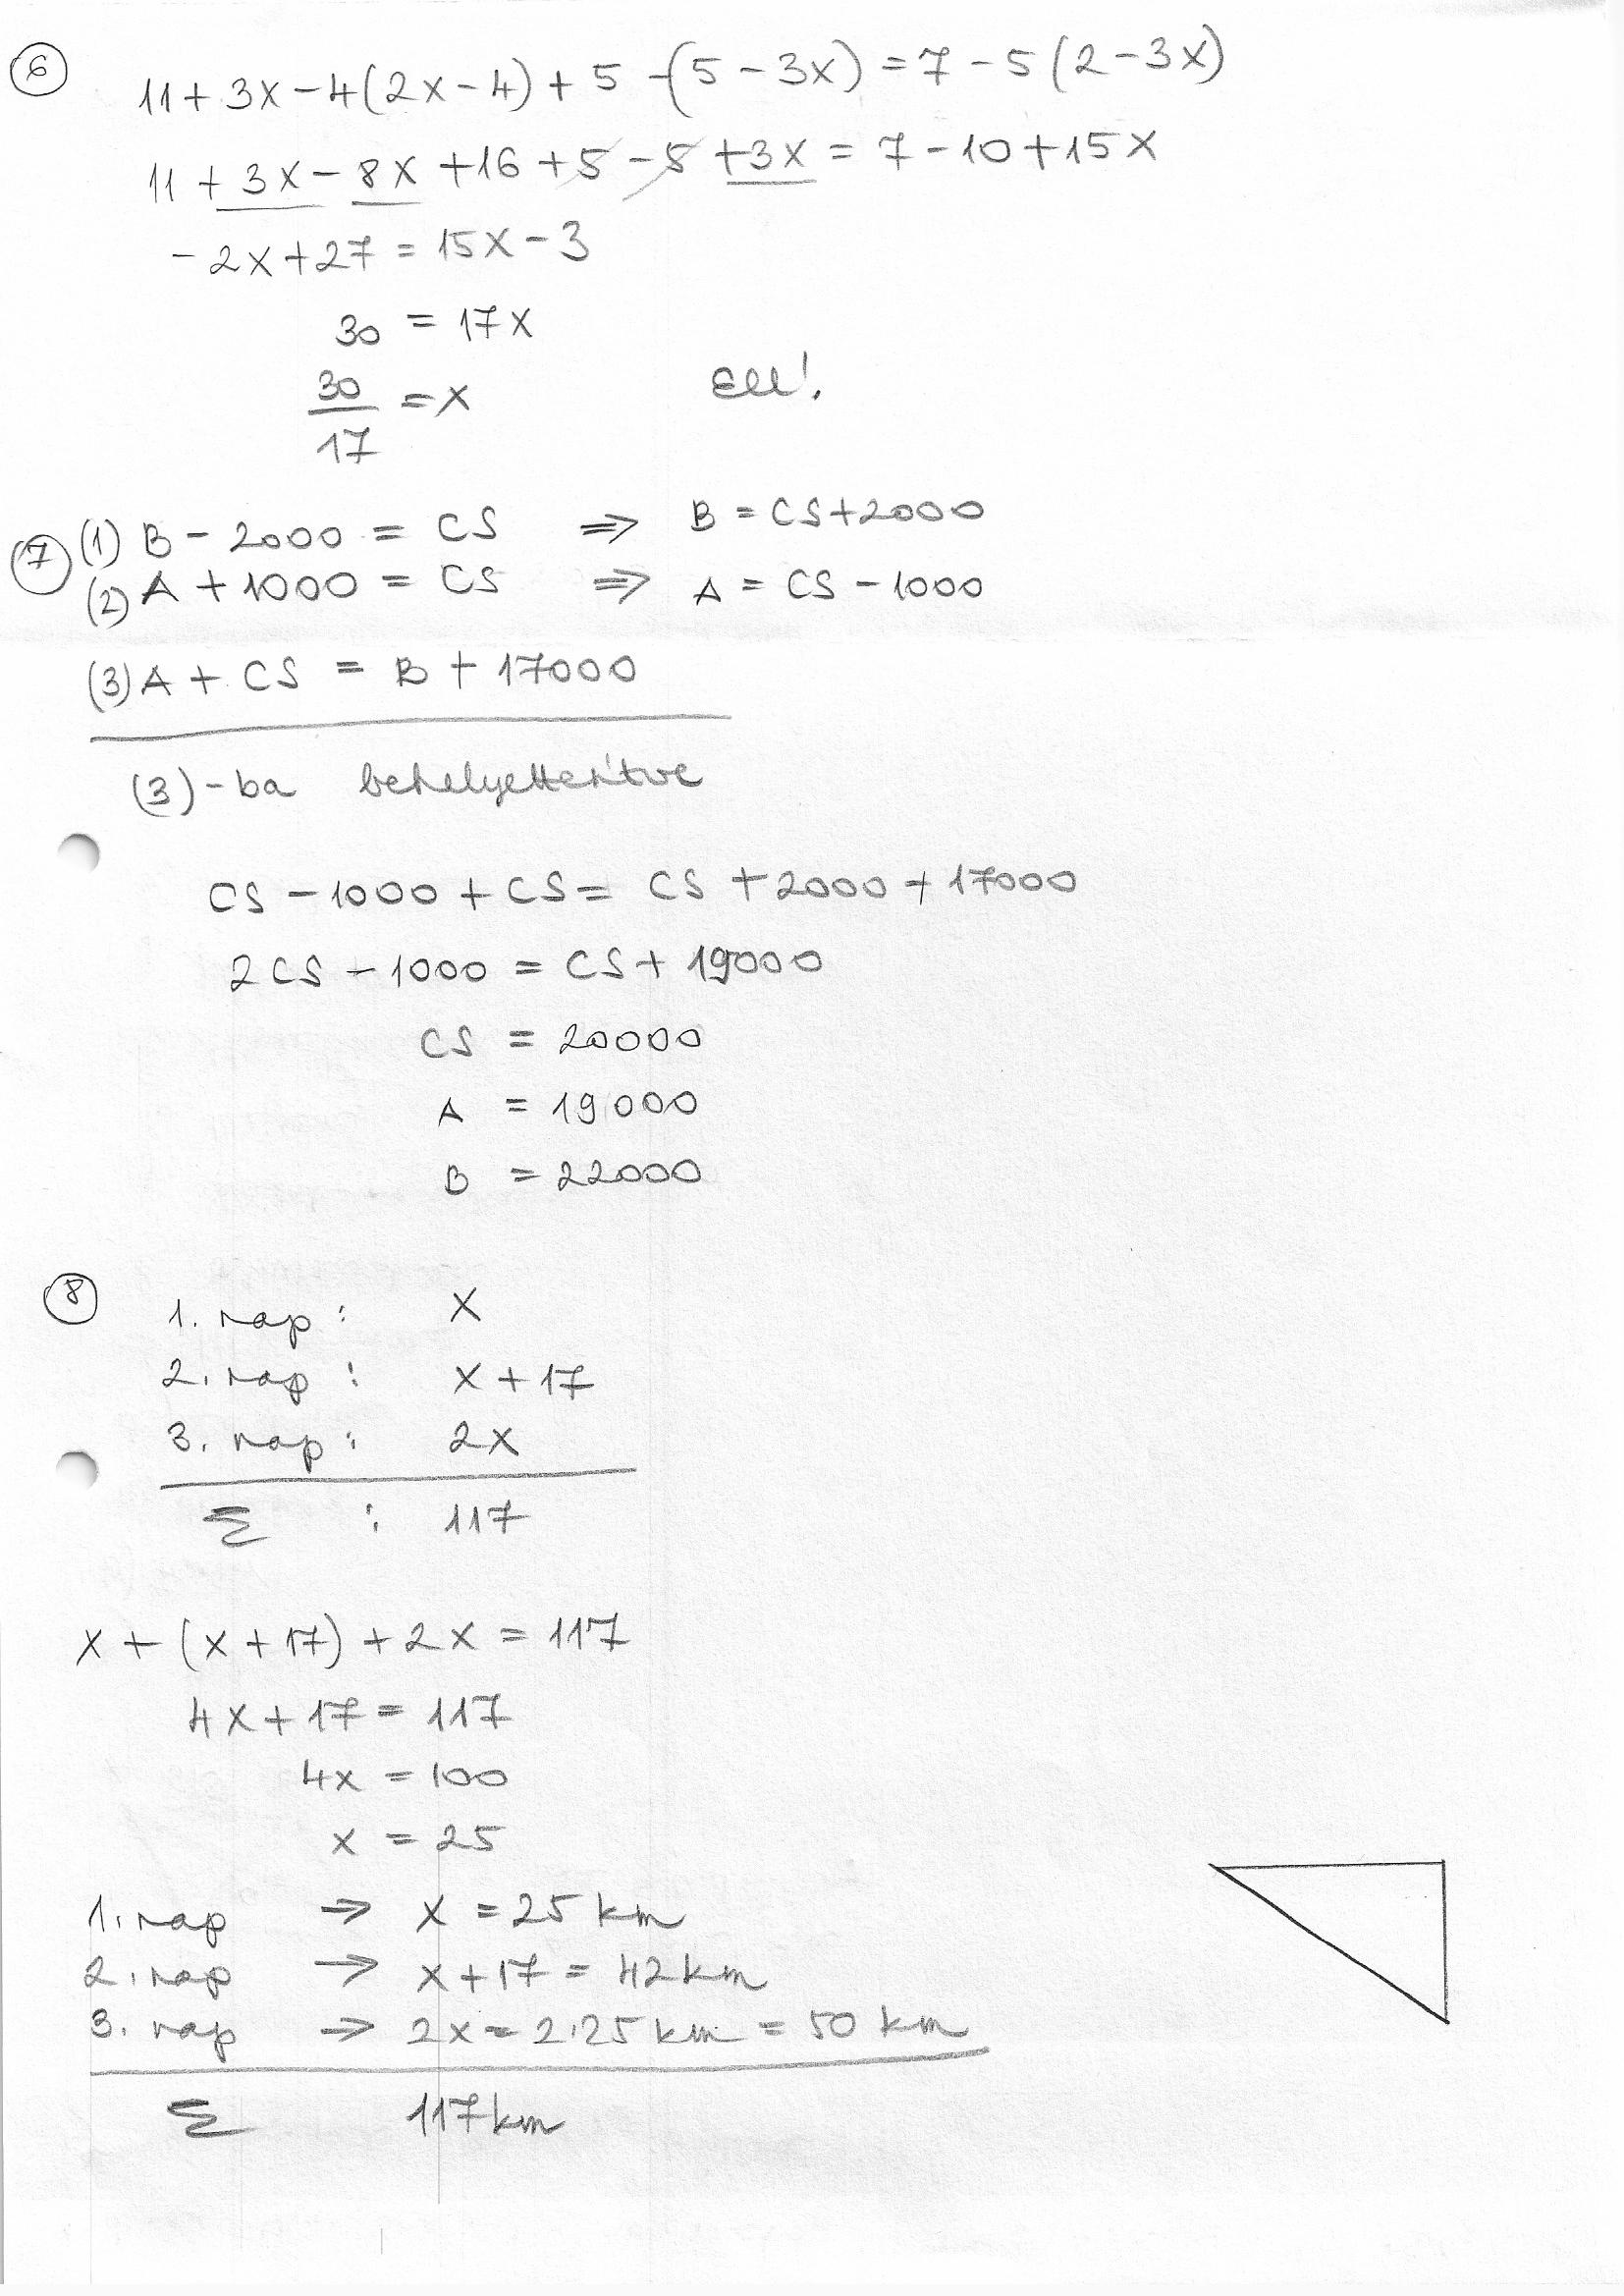 6
11 + 3x - 4(2x - 4) + 5 - (5 - 3x) = 7 - 5(2 - 3x)
11 + 3x - 8x + 16 + 5 - 5 + 3x = 7 - 10 + 15x
-2x + 27 = 15x - 3
30 = 17x
30/17 = x
Ell!
7
(1) B - 2000 = CS ⇒ B = CS + 2000
(2) A + 1000 = CS ⇒ A = CS - 1000
(3) A + CS = B + 17000
(3)-ba behelyettesítve
CS - 1000 + CS = CS + 2000 + 17000
2CS - 1000 = CS + 19000
CS = 20000
A = 19000
B = 22000
8
1. nap: x
2. nap: x + 17
3. nap: 2x
Σ : 117
x + (x + 17) + 2x = 117
4x + 17 = 117
4x = 100
x = 25
1. nap → x = 25 km
2. nap → x + 17 = 42 km
3. nap → 2x = 2·25 km = 50 km
Σ 117 km